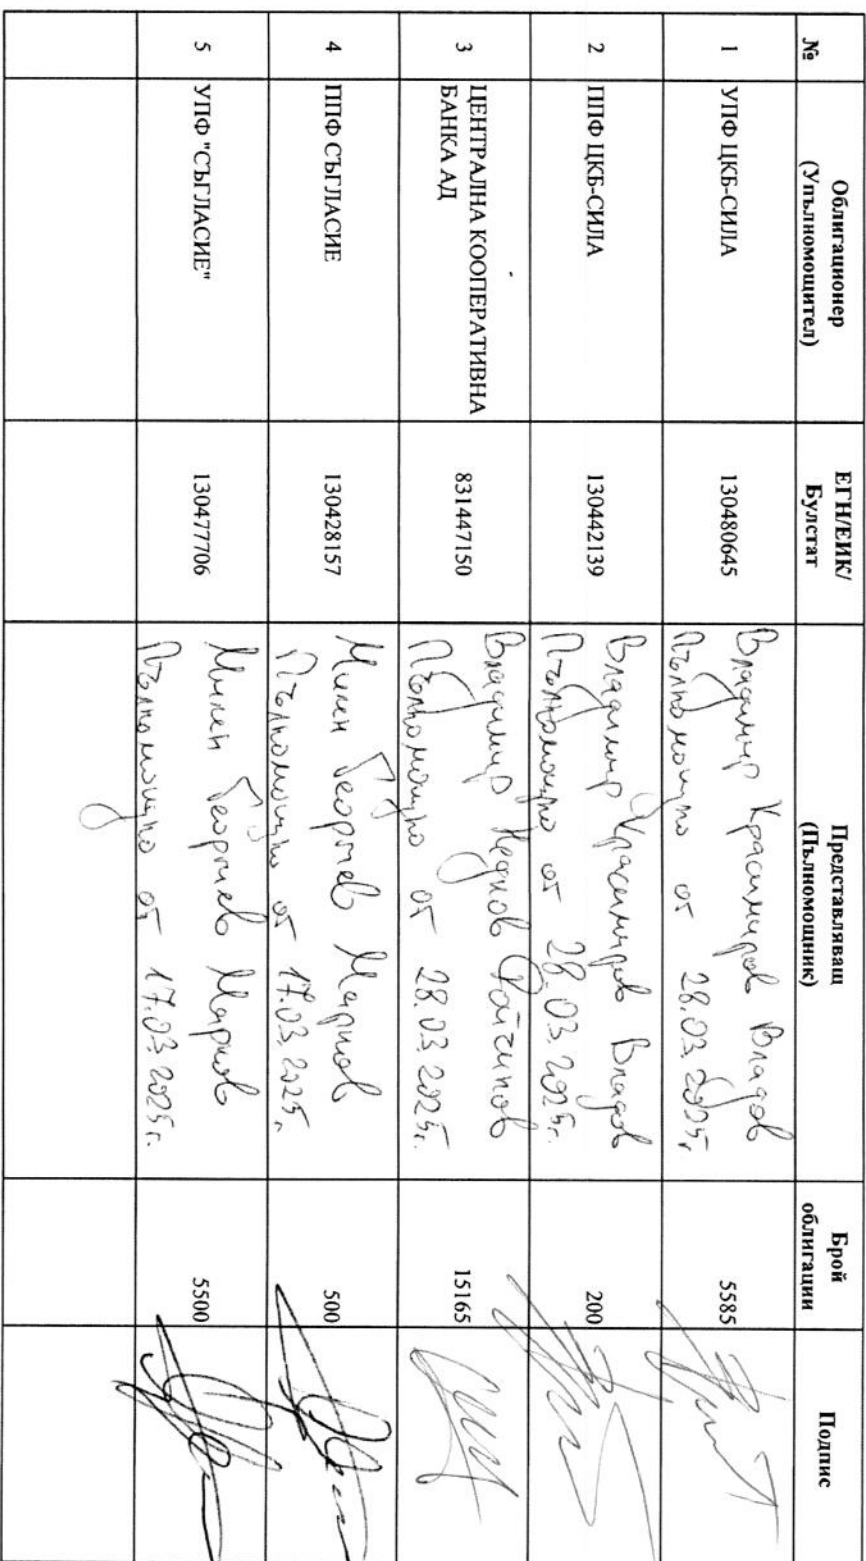 №
Облигационер
(Упълномощител)
ЕГН/ЕИК/
Булстат
Представляващ
(Пълномощник)
Брой
облигации
Подпис
1
УПФ ЦКБ-СИЛА
130480645
Владимир Красимиров Владов
Пълномощно от 28.03.2025г
5585
2
ППФ ЦКБ-СИЛА
130442139
Владимир Красимиров Владов
Пълномощно от 28.03.2025г.
200
3
ЦЕНТРАЛНА КООПЕРАТИВНА
БАНКА АД
831447150
Владимир
Пълномощно от 28.03.2025г.
15165
4
ППФ СЪГЛАСИЕ
130428157
Милен Георгиев Марков
Пълномощно от 17.03.2025г
500
5
УПФ "СЪГЛАСИЕ"
130477706
Милен Георгиев Марков
Пълномощно от 17.03.2025г.
5500